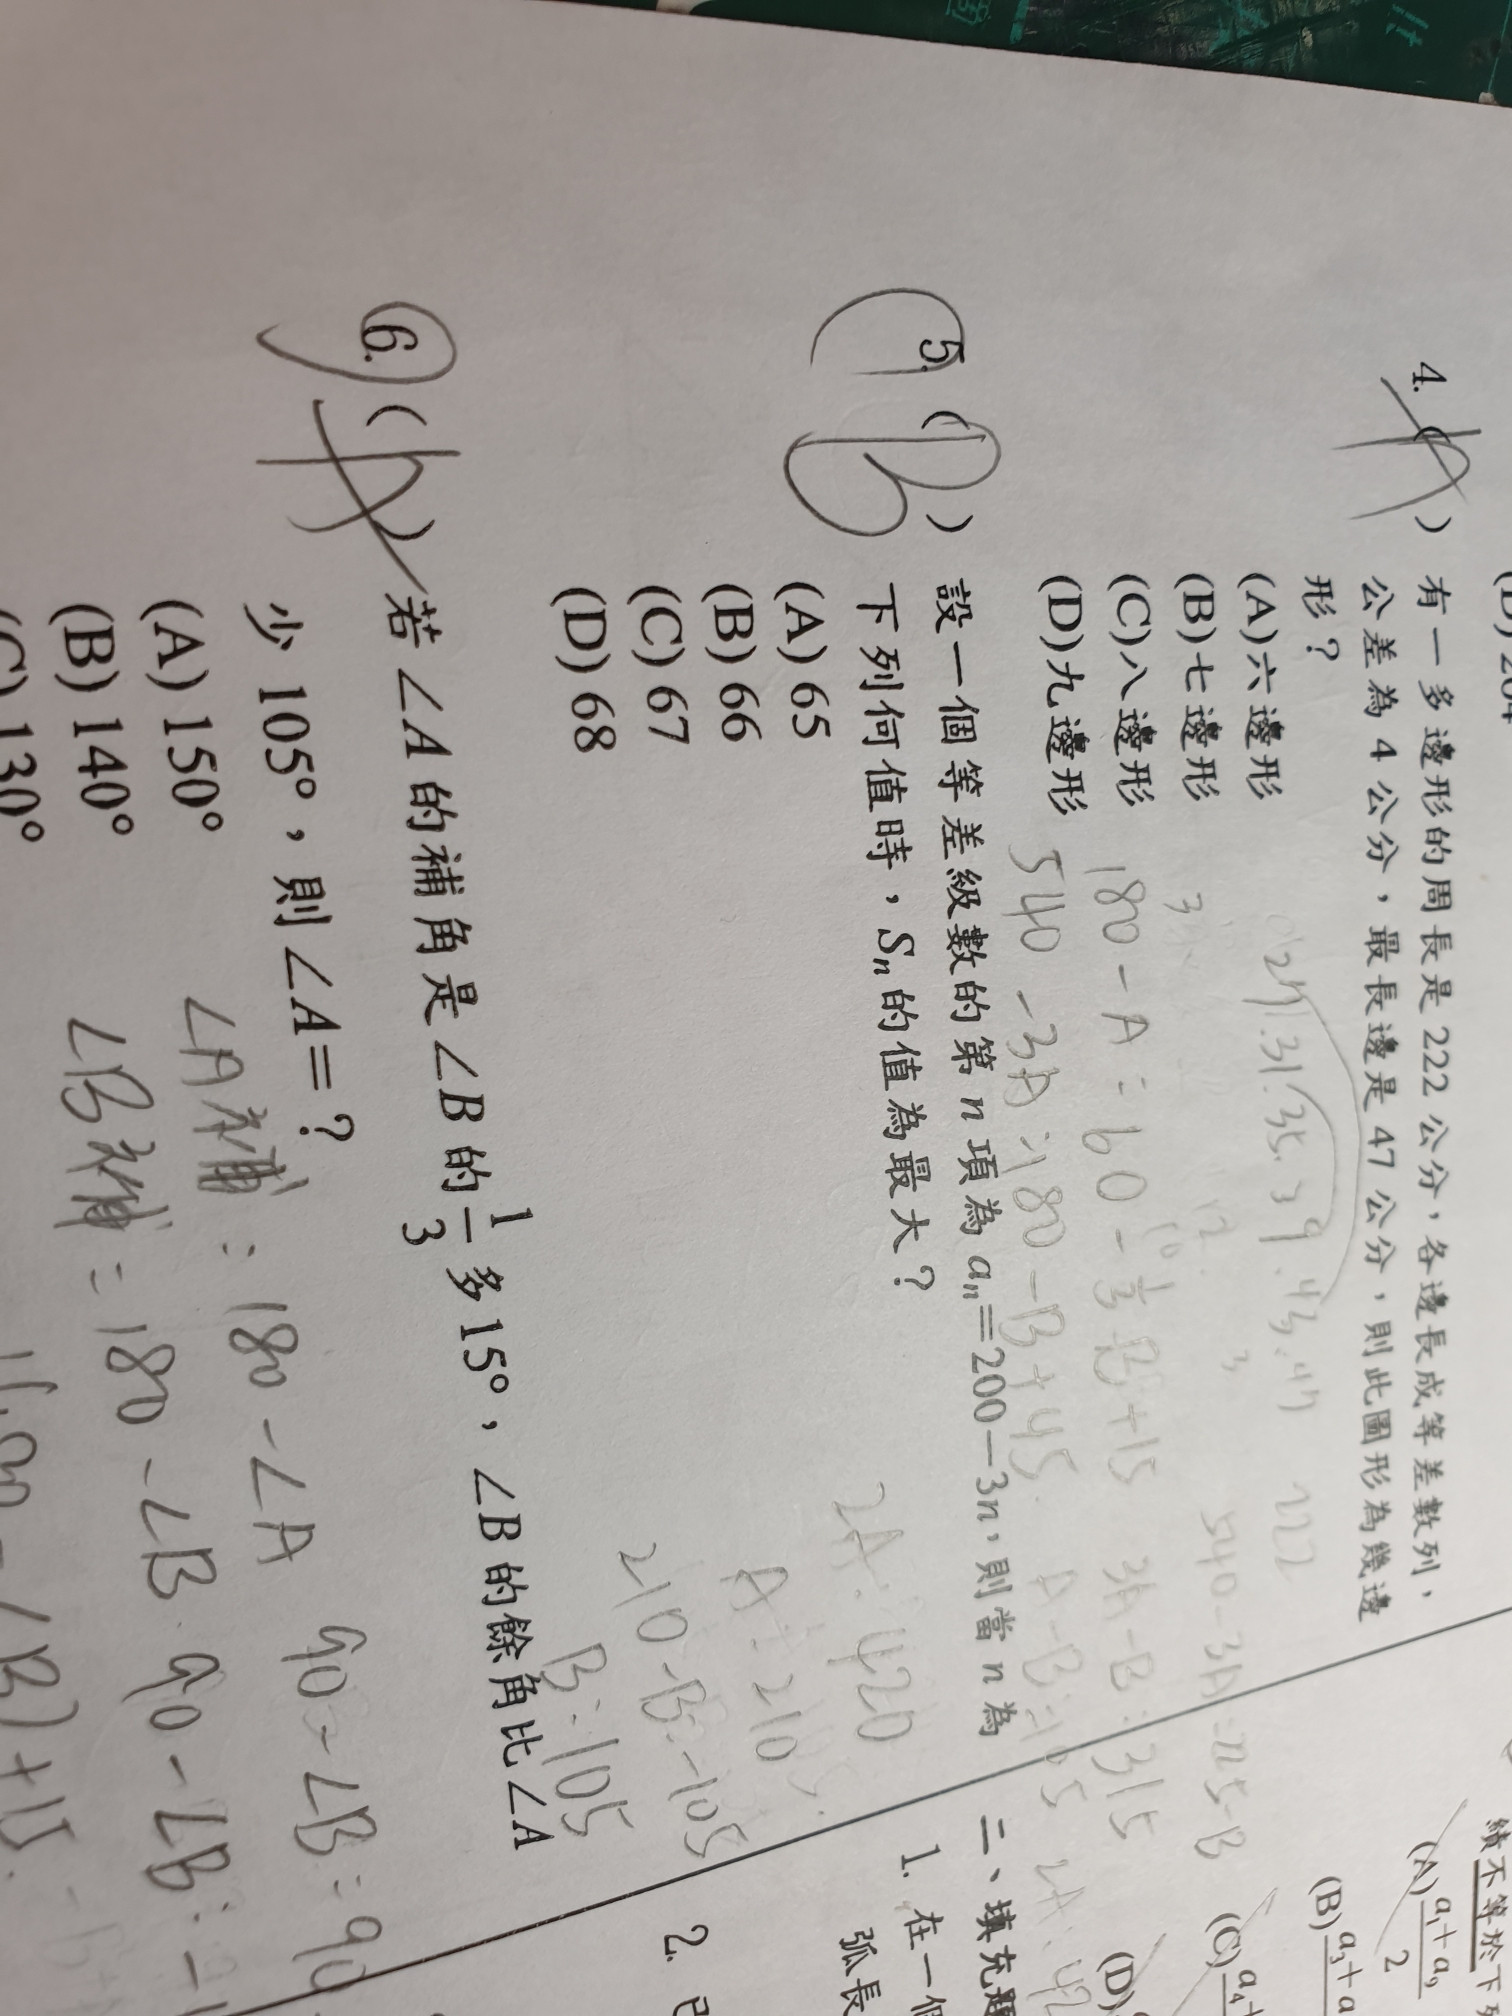 4. (A) 有一多邊形的周長是 222 公分，各邊長成等差數列，
公差為 4 公分，最長邊是 47 公分，則此圖形為幾邊
形？
(A)六邊形
(B)七邊形
(C)八邊形
(D)九邊形
31.35.39.43.47 222
180-A=60-1/3B+15 3A-B=315
540-3A=180-B+45
5. (B) 設一個等差級數的第 n 項為 aₙ=200-3n，則當 n 為
下列何值時，Sₙ的值為最大？
(A) 65
(B) 66
(C) 67
(D) 68
2A=420
A=210
210-B=105
B=105
6. (A) 若∠A 的補角是∠B 的 1/3 多 15°，∠B 的餘角比∠A
少 105°，則∠A=？
(A) 150°
(B) 140°
(C) 130°
∠A補=180-∠A 90-∠B=90
∠B補=180-∠B 90-∠B=
績不等於下
(A) a₁+a₉/2
(B) a₃+a
(C) a₄+
(D)
二、填充題
1. 在一個
弧長
2. 已